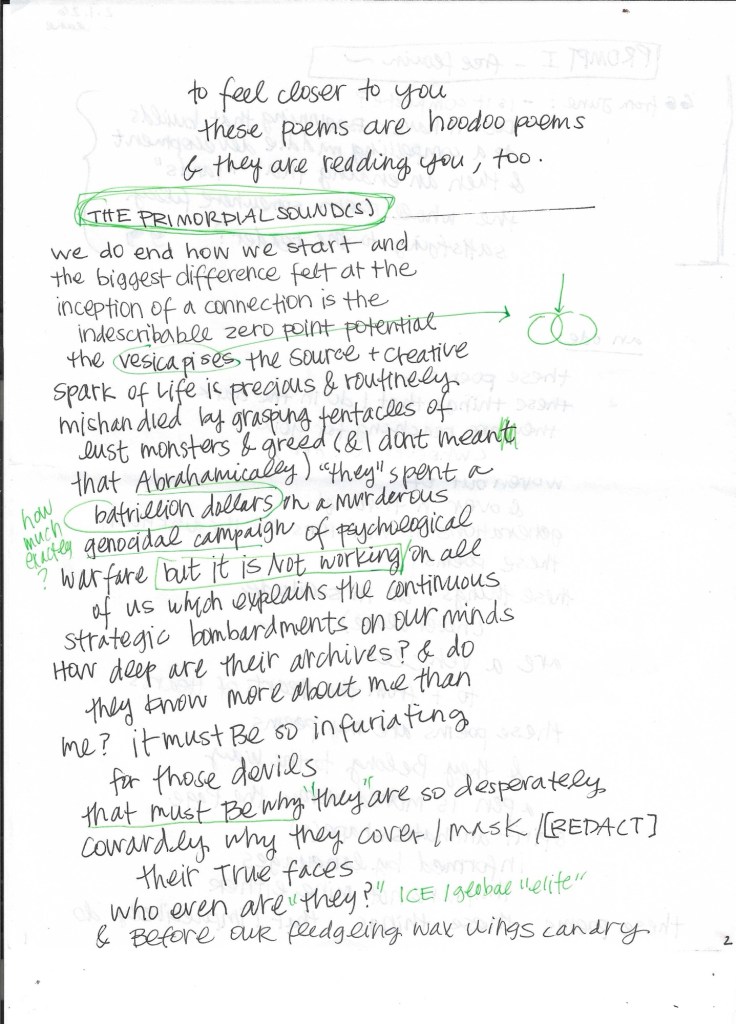 to feel closer to you
these poems are hoodoo poems
& they are redding you, too.
THE PRIMORDIAL SOUND(S)
we do end how we start and
the biggest difference felt at the
inception of a connection is the
indescribable zero point potential
the vesica pises the source + creative
spark of life is precious & routinely
mishandled by grasping tentacles of
lust monsters & greed (& I dont meant
that Abrahamically) "they" spent a
batrillion dollars on a murderous
how much exactly?
genocidal campaign of psychological
warfare but it is Not working on all
of us which explains the continuous
strategic bombardments on our minds
How deep are their archives? & do
they know more about me than
me? it must Be so infuriating
for those devils
that must Be why "they" are so desperately
cowardly why they cover / mask / [REDACT]
their True faces
who even are "they?" ICE / global "elite"
& Before our fledgeling wax wings can dry
2